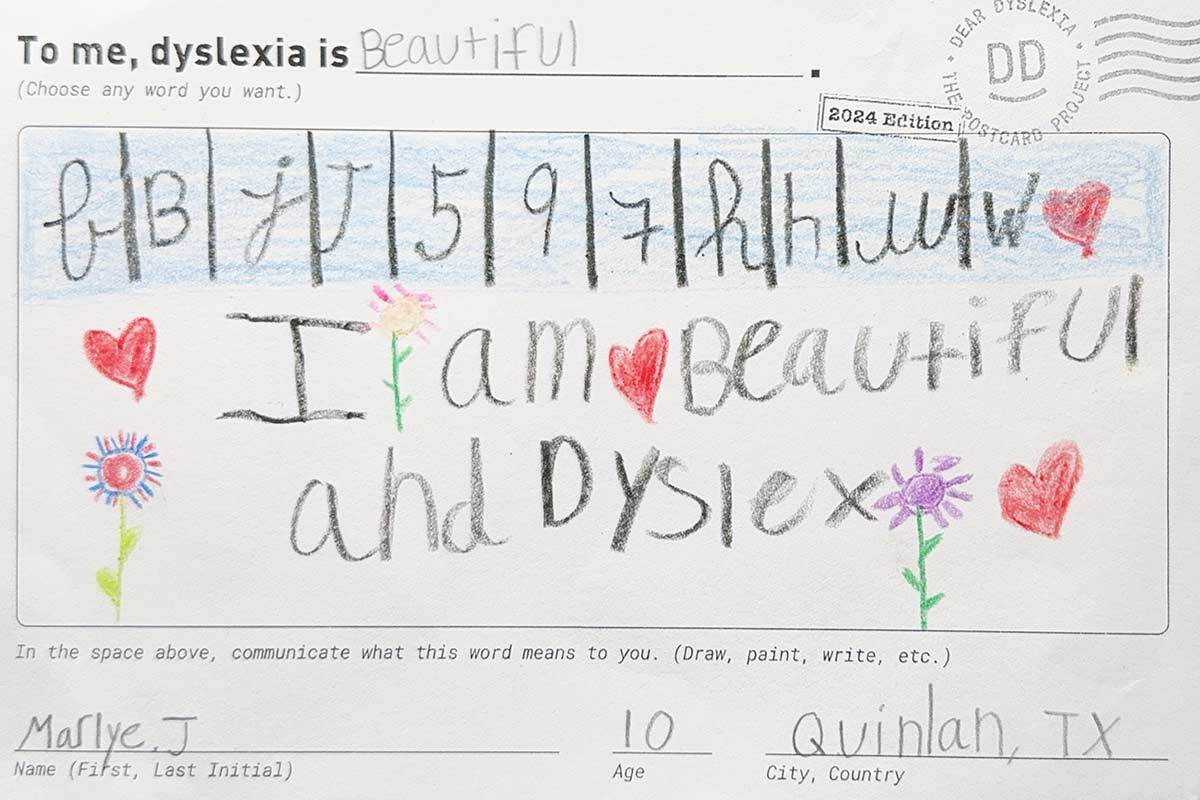 To me, dyslexia is Beautiful.
(Choose any word you want.)
DEAR DYSLEXIA • THE POSTCARD PROJECT •
DD
2024 Edition
b B j J 5 9 7 h h w w
I am Beautiful
and Dyslex
In the space above, communicate what this word means to you. (Draw, paint, write, etc.)
Marlye. J 10 Quinlan, TX
Name (First, Last Initial) Age City, Country